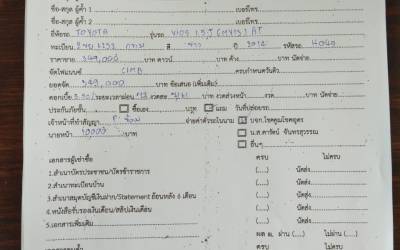 ชื่อ-สกุล ผู้ค้ำ 1 เบอร์โทร.
ชื่อ-สกุล ผู้ค้ำ 2 เบอร์โทร.
ยี่ห้อรถ TOYOTA รุ่น VIOS 1.5 J AT
ทะเบียน กทม สี ขาว ปี 2014 รหัสรถ. 4040
ราคาขาย 349,000 บาท ดาวน์ บาท ค้าง บาท นัดจ่าย
จัดไฟแนนซ์ CIMB ครบกำหนดวันที่
ยอดจัด 349,000 บาท ข้อเสนอ (เพิ่มเติม)
ดอกเบี้ย ระยะเวลาผ่อน งวดละ บาท งวดล่วงหน้า งวด บาท/นัดจ่าย
ประกันภัยชั้น ซื้อเอง บาท แถม วันที่ปล่อยรถ
เจ้าหน้าที่ทำสัญญา จ่ายค่าตัวรถในนาม บจก.โชคคูณโชคออโต
นายหน้า 10,000 บาท น.ส.ดารัตน์ จันทรสุวรรณ
อื่นๆ
เอกสารผู้เช่าซื้อ ครบ ไม่ครบ
1.สำเนาบัตรประชาชน/บัตรข้าราชการ (....) (....) นัดส่ง
2.สำเนาทะเบียนบ้าน (....) (....) นัดส่ง
3.สำเนาสมุดบัญชีเงินฝาก/Statement ย้อนหลัง 6 เดือน (....) (....) นัดส่ง
4.หนังสือรับรองเงินเดือน/สลิปเงินเดือน (....) (....) นัดส่ง
5.เอกสารเพิ่มเติม ผล ผ่าน (....) ไม่ผ่าน (....)
ครบ ไม่ครบ